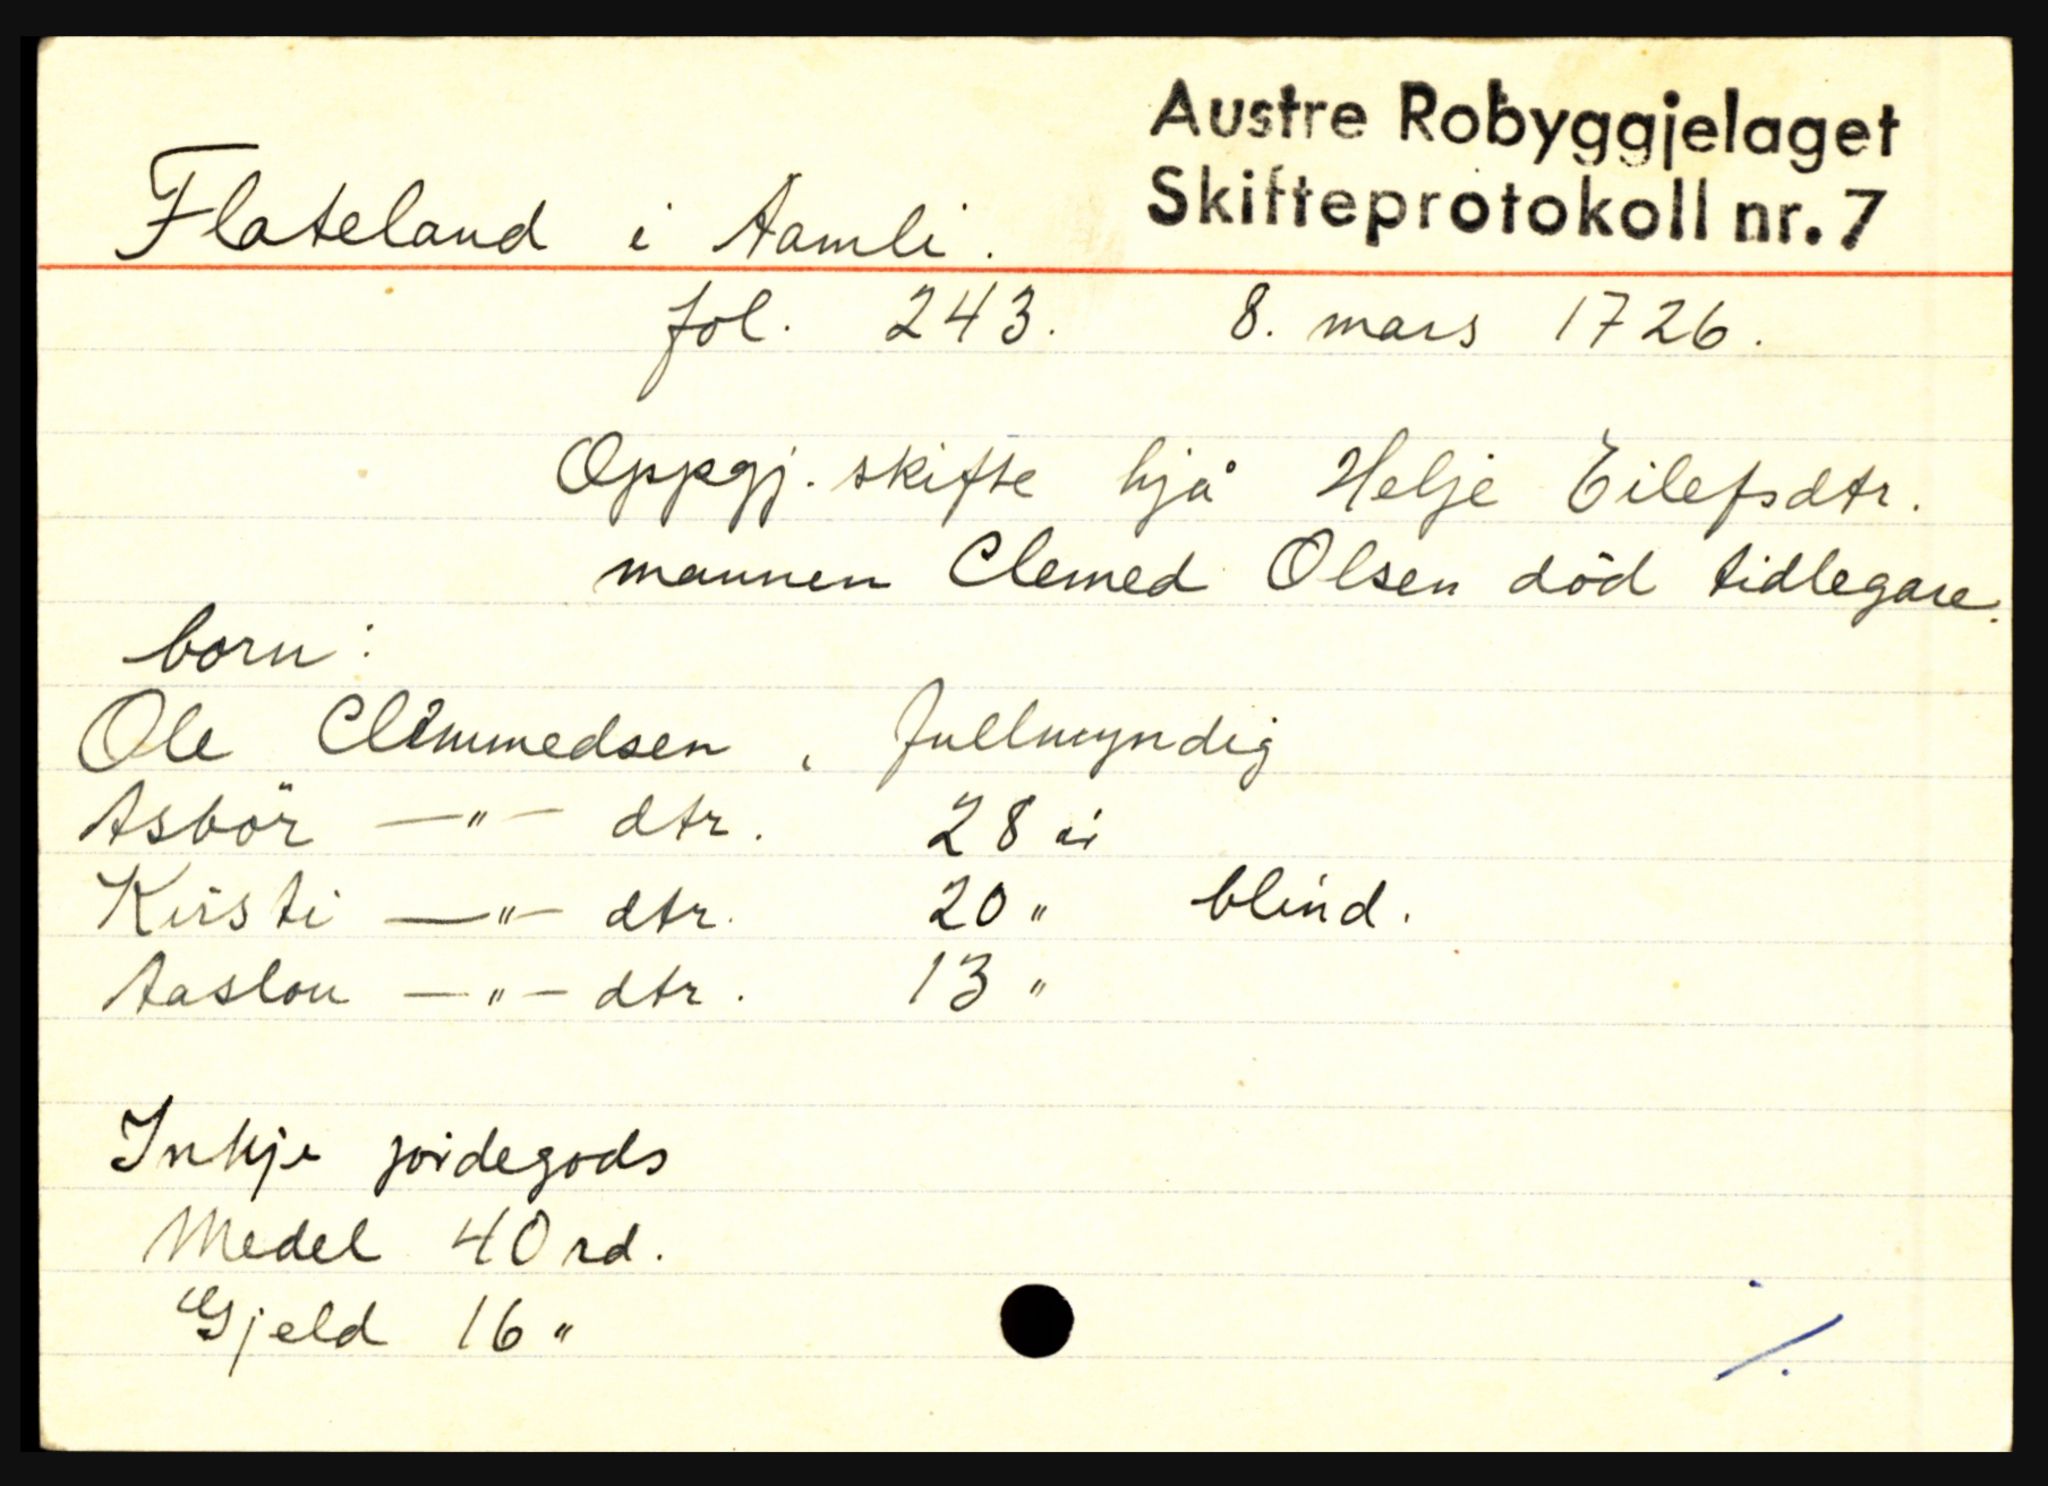 Austre Robyggjelaget
Skifteprotokoll nr. 7
Flateland i Aamli.
fol. 243. 8. mars 1726.
Oppgj. skifte hjå Helje Eilefsdtr.
mannen Clemed Olsen död tidlegare.
born:
Ole Clemmedsen, fullmyndig
Asbör —„— dtr. 28 år
Kirsti —„— dtr. 20 „ blind.
Aaslou —„— dtr. 13 „
Inkje jordegods
Medel 40 rd.
Gjeld 16 „
./.